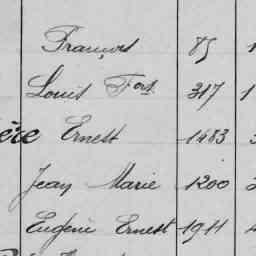 François 85 1
Louis Fois 317 1
ère Ernest 1483
Jean Marie 1200 2
Eugène Ernest 1911